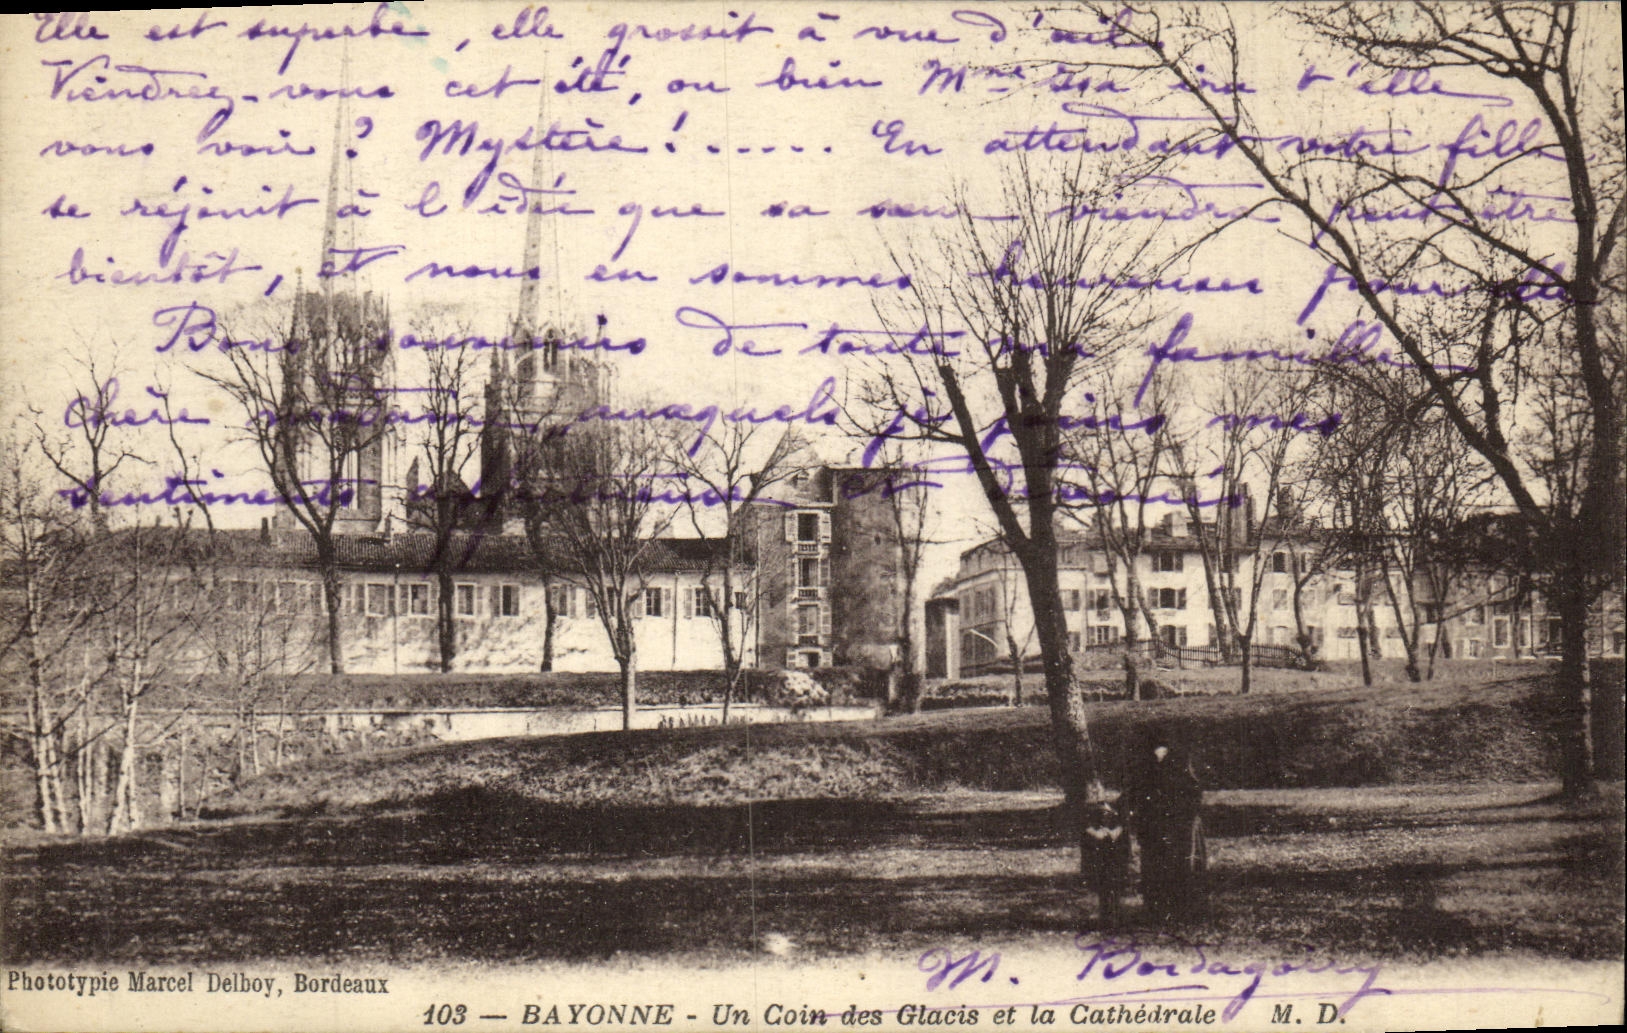 Elle est superbe, elle grossit à vue d'œil.
Viendrez-vous cet été, ou bien Mme ira t'elle
vous voir ? Mystère !..... En attendant votre fille
se réjouit à l'idée que sa sœur viendra peut être
bientôt, et nous en sommes heureuses pour elle
Bons souvenirs de toute ma famille
chère madame, auxquels je joins mes
sentiments affectueux et dévoués
M. Bordagaray
Phototypie Marcel Delboy, Bordeaux
103 — BAYONNE - Un Coin des Glacis et la Cathédrale M. D.